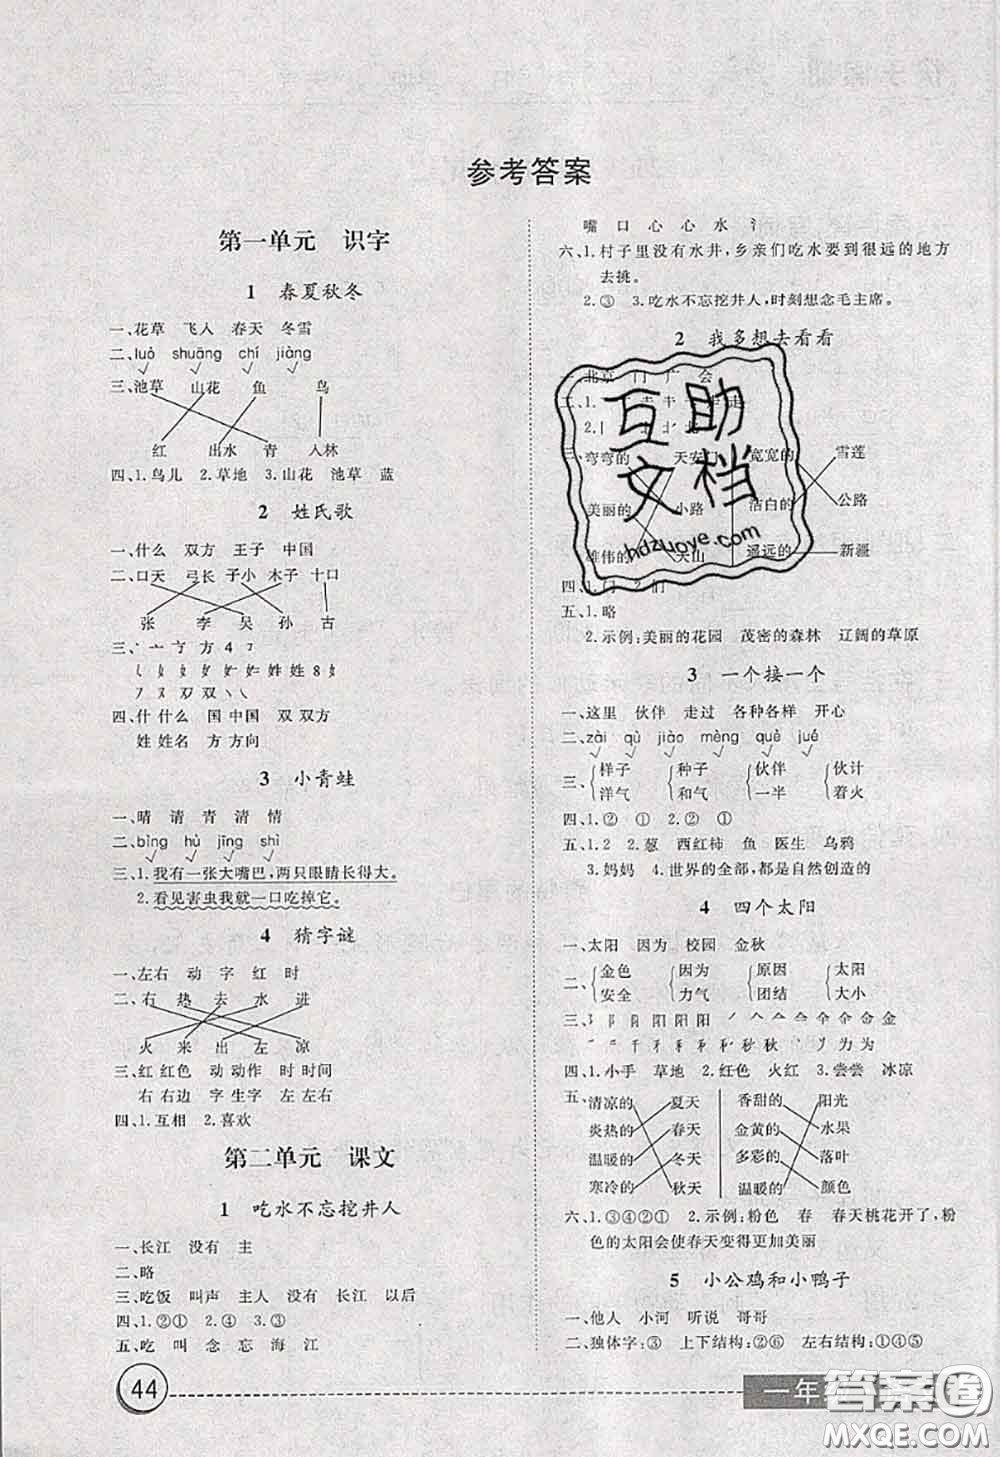 参考答案
第一单元 识字
1 春夏秋冬
一、花草 飞人 春天 冬雪
二、luò shuāng chí jiàng
三、池草 山花 鱼 鸟
红 出水 青 入林
四、1.鸟儿 2.草地 3.山花 池草 蓝
2 姓氏歌
一、什么 双方 王子 中国
二、口天 弓长 子小 木子 十口
张 李 吴 孙 古
四、什 什么 国 中国 双 双方
姓 姓名 方 方向
3 小青蛙
一、晴 请 青 清 情
二、bìng hù jīng shì
三、1.我有一张大嘴巴，两只眼睛长得大。
2.看见害虫我就一口吃掉它。
4 猜字谜
一、左右 动 字 红 时
二、右 热 去 水 进
火 来 出 左 凉
三、红 红色 动 动作 时 时间
右 右边 字 生字 左 左右
四、1.互相 2.喜欢
第二单元 课文
1 吃水不忘挖井人
一、长江 没有 主
二、略
三、吃饭 叫声 主人 没有 长江 以后
四、1.②① 2.①③ 3.③
五、吃 叫 念 忘 海 江
嘴 口 心 心 水 氵
六、1.村子里没有水井，乡亲们吃水要到很远的地方
去挑。
2.③ 3.吃水不忘挖井人，时刻想念毛主席。
2 我多想去看看
一、北京 门 广 会
三、弯弯的 天安门 宽宽的 雪莲
美丽的 小路 洁白的 公路
雄伟的 天山 遥远的 新疆
四、1.门 2.们
五、1.略
2.示例：美丽的花园 茂密的森林 辽阔的草原
3 一个接一个
一、这里 伙伴 走过 各种各样 开心
二、zài qù jiào mèng què jué
三、样子 种子 伙伴 伙计
洋气 和气 一半 着火
四、1.② ① 2.② ①
五、1.2 2.葱 西红柿 鱼 医生 乌鸦
3.妈妈 4.世界的全部，都是自然创造的
4 四个太阳
一、太阳 因为 校园 金秋
二、金色 因为 原因 太阳
安全 力气 团结 大小
四、1.小手 草地 2.红色 火红 3.尝尝 冰凉
五、清凉的 夏天 香甜的 阳光
炎热的 春天 金黄的 水果
温暖的 冬天 多彩的 落叶
寒冷的 秋天 温暖的 颜色
六、1.③④②① 2.示例：粉色 春 春天桃花开了，粉
色的太阳会使春天变得更加美丽
5 小公鸡和小鸭子
一、他人 小河 听说 哥哥
二、独体字：③ 上下结构：②⑥ 左右结构：①④⑤
44
一年级
互助
文档
hdzuoye.com
答案圈
MXQE.COM